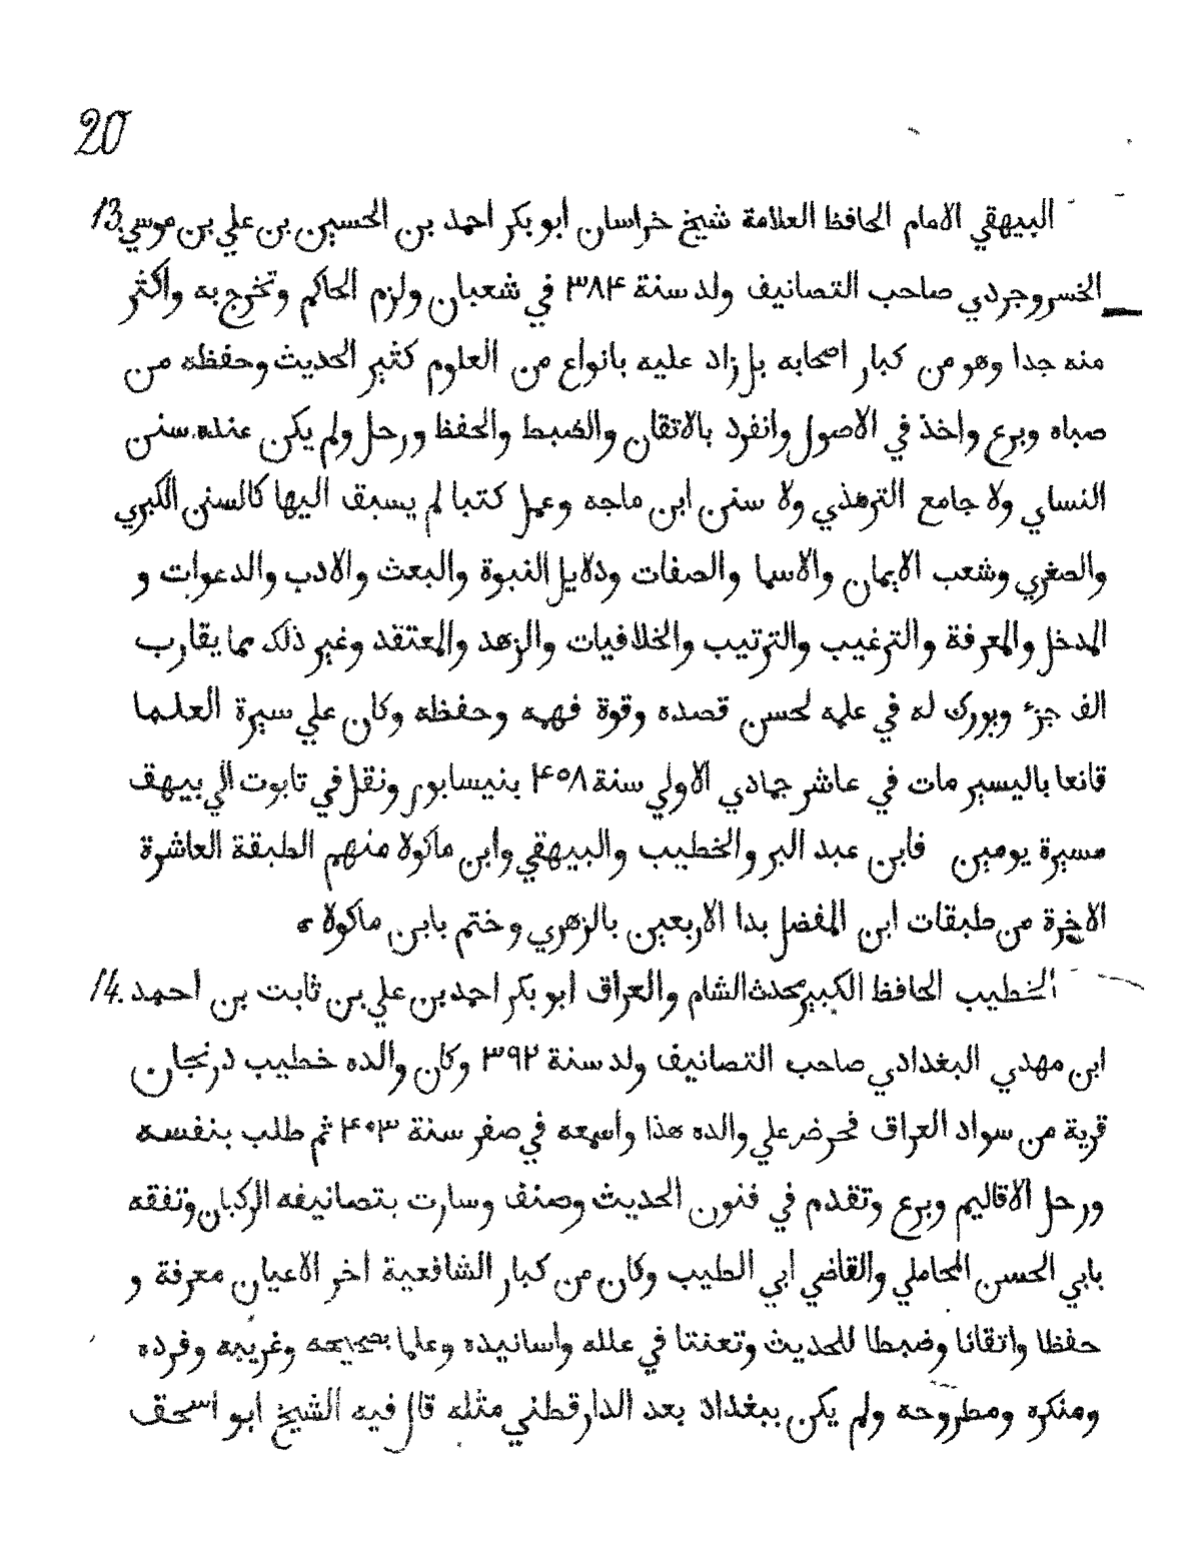 20
13. البيهقي الامام الحافظ العلامة شيخ خراسان ابو بكر احمد بن الحسين بن علي بن موسي
الخسروجردي صاحب التصانيف ولد سنة ٣٨۴ في شعبان ولزم الحاكم وتخرج به واكثر
منه جدا وهو من كبار اصحابه بل زاد عليه بانواع من العلوم كثير الحديث وحفظه من
صباه وبرع واخذ في الاصول وانفرد بالاتقان والضبط والحفظ ورحل ولم يكن عنده سنن
النساي ولا جامع الترمذي ولا سنن ابن ماجه وعمل كتبا لم يسبق اليها كالسنن الكبري
والصغري وشعب الايمان والاسما والصفات ودلايل النبوة والبعث والادب والدعوات و
المدخل والمعرفة والترغيب والترتيب والخلافيات والزهد والمعتقد وغير ذلك مما يقارب
الف جزء وبورك له في علمه لحسن قصده وقوة فهمه وحفظه وكان علي سيرة العلما
قانعا باليسير مات في عاشر جمادي الاولي سنة ۴٥٨ بنيسابور ونقل في تابوت الي بيهق
مسيرة يومين فابن عبد البر والخطيب والبيهقي وابن ماكولا منهم الطبقة العاشرة
الاخرة من طبقات ابن المفضل بدا الاربعين بالزهري وختم بابن ماكولا ه
14. الخطيب الحافظ الكبير محدث الشام والعراق ابو بكر احمد بن علي بن ثابت بن احمد
ابن مهدي البغدادي صاحب التصانيف ولد سنة ٣٩٢ وكان والده خطيب درنجان
قرية من سواد العراق فحرض علي والده هذا واسمعه في صفر سنة ۴٠٣ ثم طلب بنفسه
ورحل الاقاليم وبرع وتقدم في فنون الحديث وصنف وسارت بتصانيفه الركبان وتفقه
بابي الحسن المحاملي والقاضي ابي الطيب وكان من كبار الشافعية اخر الاعيان معرفة و
حفظا واتقانا وضبطا للحديث وتعنتا في علله واسانيده وعلما بصحيحه وغريبه وفرده
ومنكره ومطروحه ولم يكن ببغداد بعد الدارقطني مثله قال فيه الشيخ ابو اسحق